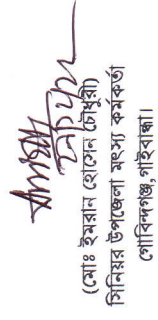 (মোঃ ইমরান হোসেন চৌধুরী)
সিনিয়র উপজেলা মৎস্য কর্মকর্তা
গোবিন্দগঞ্জ, গাইবান্ধা।